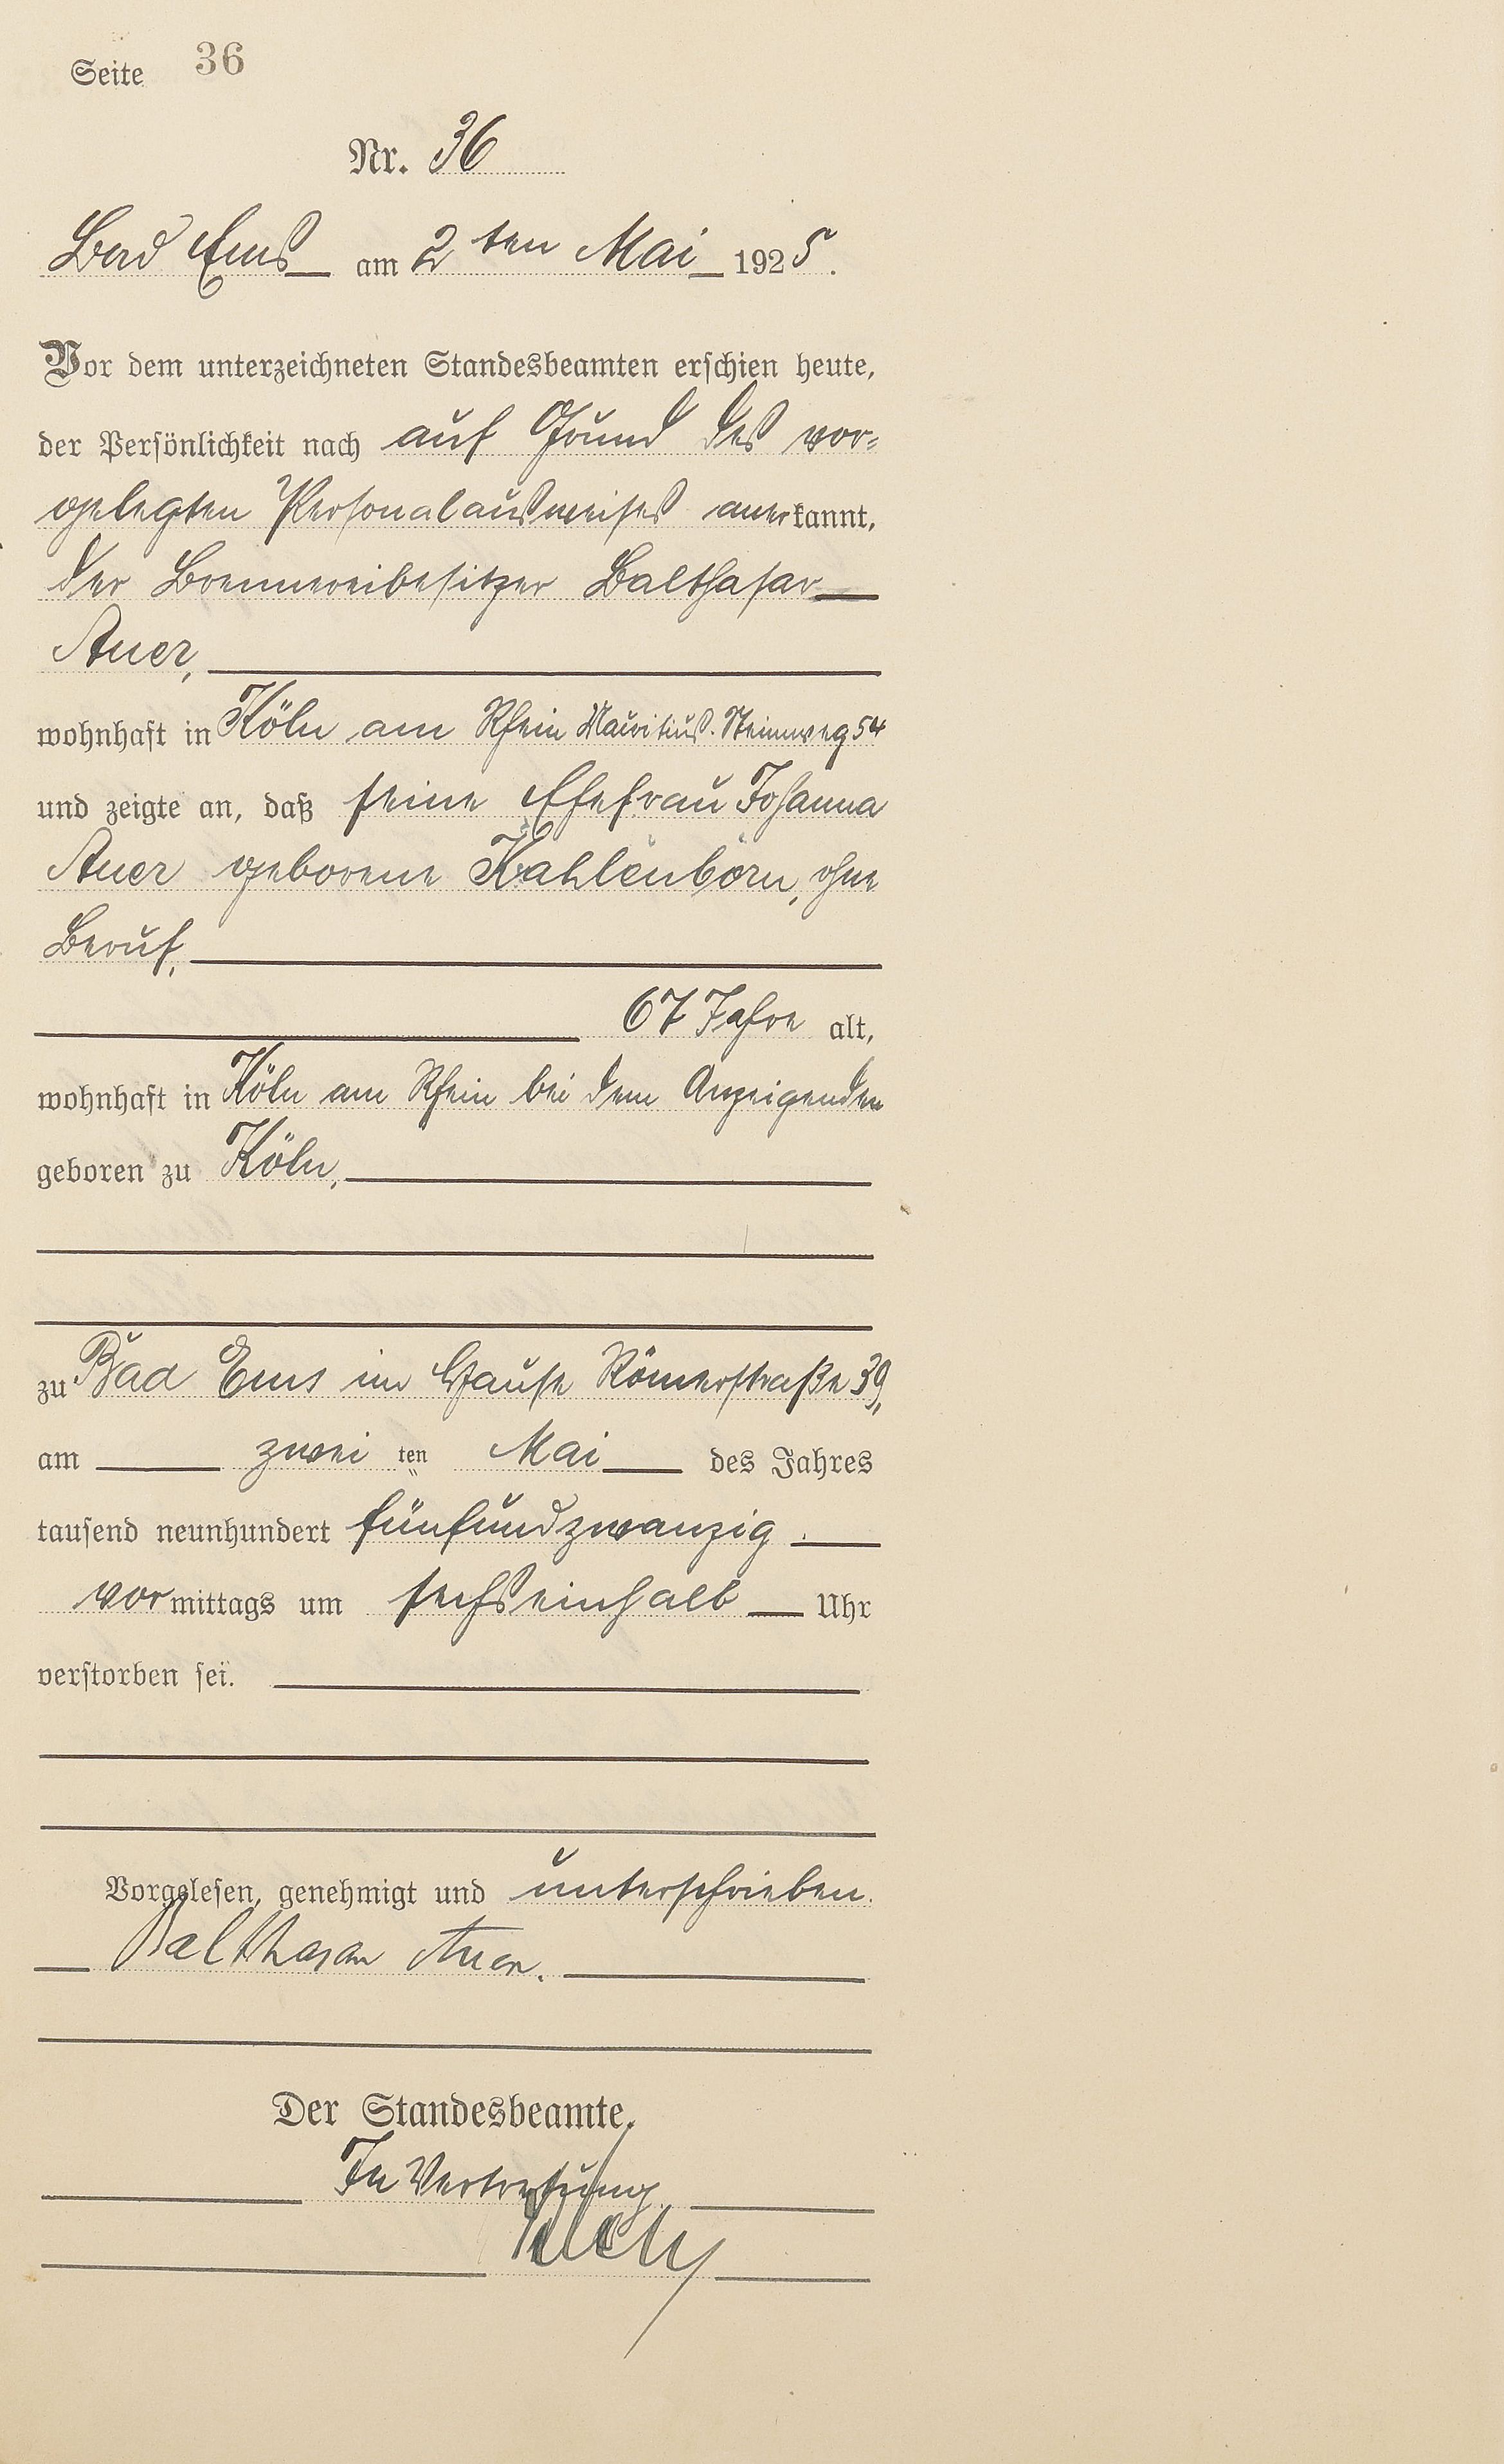 Seite 36
Nr. 36
Bad Ems am 2 ten Mai 1925.
Vor dem unterzeichneten Standesbeamten erschien heute,
der Persönlichkeit nach auf Grund des vor-
gelegten Personalausweises anerkannt,
der Brennereibesitzer Balthasar
Auer,
wohnhaft in Köln am Rhein Mauritius. Steinweg 54
und zeigte an, daß seine Ehefrau Johanna
Auer geborene Kahlenborn, ohne
Beruf,
67 Jahre alt,
wohnhaft in Köln am Rhein bei dem Anzeigenden
geboren zu Köln,
zu Bad Ems im Hause Römerstraße 39,
am zwei ten Mai des Jahres
tausend neunhundert fünfundzwanzig
vormittags um sechseinhalb Uhr
verstorben sei.
Vorgelesen, genehmigt und unterschrieben.
Balthasar Auer.
Der Standesbeamte.
In Vertretung